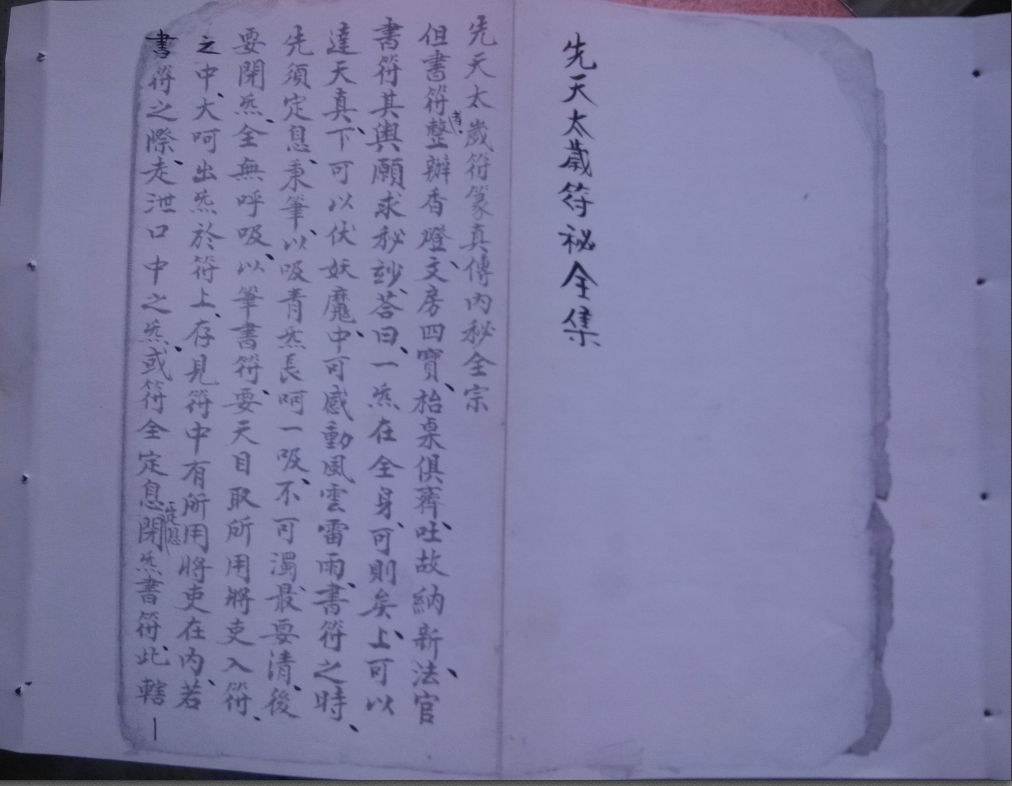 先天太歲符秘全集
先天太歲符篆真傳內秘全宗
但書符時整辦香燈、文房四寶、枱桌俱齊、吐故納新、法官
書符其與願求秘訣、答曰、一炁在全身、可則矣、上可以
達天真、下可以伏妖魔、中可感動風雲雷雨、書符之時、
先須定息、秉筆、以吸青炁長呵一吸、不可濁、最要清、後
要閉炁、全無呼吸、以筆書符、要天目取所用將吏入符、
之中、大呵出炁於符上、存見符中有所用將吏在內、若
書符之際、走泄口中之炁、或符全定息一定息閉炁書符、此轄